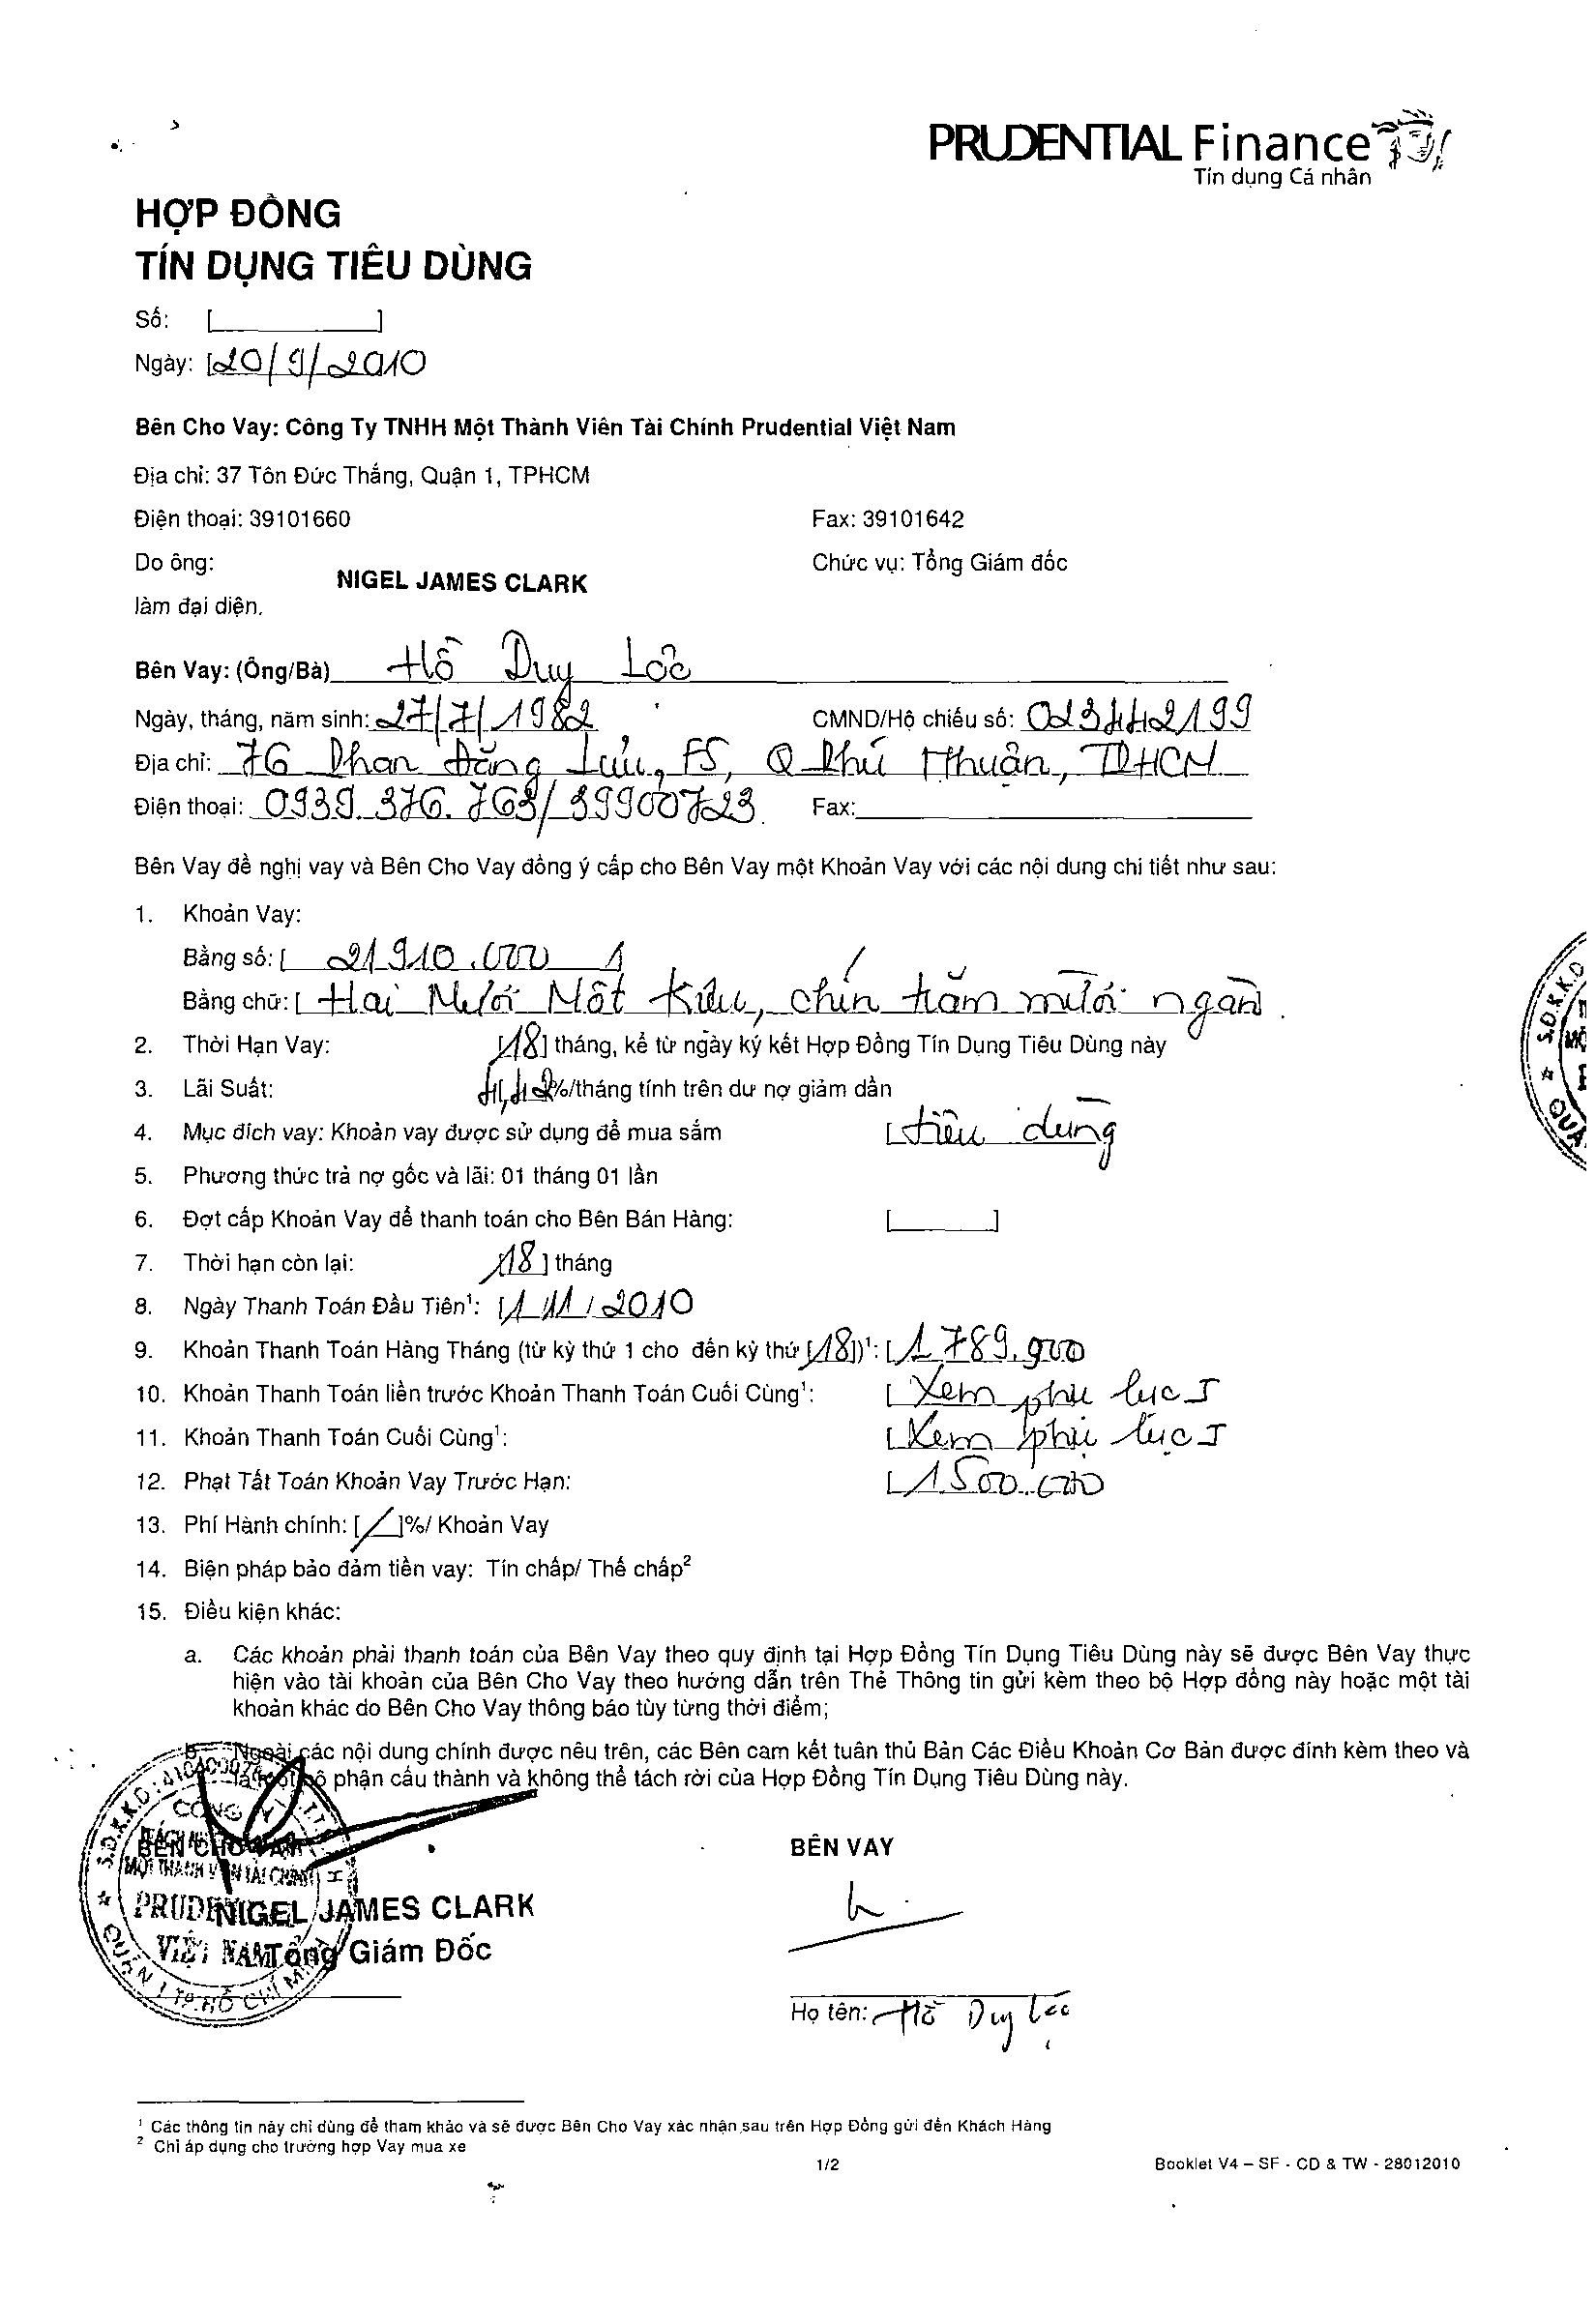 PRUDENTIAL Finance
Tín dụng Cá nhân
HỢP ĐỒNG
TÍN DỤNG TIÊU DÙNG
Số: [ ]
Ngày: [20/9/2010
Bên Cho Vay: Công Ty TNHH Một Thành Viên Tài Chính Prudential Việt Nam
Địa chỉ: 37 Tôn Đức Thắng, Quận 1, TPHCM
Điện thoại: 39101660 Fax: 39101642
Do ông: NIGEL JAMES CLARK Chức vụ: Tổng Giám đốc
làm đại diện.
Bên Vay: (Ông/Bà) Hồ Duy Lộc
Ngày, tháng, năm sinh: 27/7/1982 CMND/Hộ chiếu số: 023442199
Địa chỉ: 76 Phan Đăng Lưu, F5, Q Phú Nhuận, TPHCM
Điện thoại: 0939.376.763/39900723 Fax:
Bên Vay đề nghị vay và Bên Cho Vay đồng ý cấp cho Bên Vay một Khoản Vay với các nội dung chi tiết như sau:
1. Khoản Vay:
Bằng số: [ 21.910.000
Bằng chữ: [ Hai Mươi Mốt triệu, chín trăm mười ngàn.
2. Thời Hạn Vay: [18] tháng, kể từ ngày ký kết Hợp Đồng Tín Dụng Tiêu Dùng này
3. Lãi Suất: 4,42%/tháng tính trên dư nợ giảm dần
4. Mục đích vay: Khoản vay được sử dụng để mua sắm [ tiêu dùng
5. Phương thức trả nợ gốc và lãi: 01 tháng 01 lần
6. Đợt cấp Khoản Vay để thanh toán cho Bên Bán Hàng: [ ]
7. Thời hạn còn lại: [18] tháng
8. Ngày Thanh Toán Đầu Tiên¹: [1/11/2010
9. Khoản Thanh Toán Hàng Tháng (từ kỳ thứ 1 cho đến kỳ thứ [18])¹: [1.789.900
10. Khoản Thanh Toán liền trước Khoản Thanh Toán Cuối Cùng¹: [ Xem phụ lục I
11. Khoản Thanh Toán Cuối Cùng¹: [ Xem phụ lục I
12. Phạt Tất Toán Khoản Vay Trước Hạn: [1.500.000
13. Phí Hành chính: [/]%/ Khoản Vay
14. Biện pháp bảo đảm tiền vay: Tín chấp/ Thế chấp²
15. Điều kiện khác:
a. Các khoản phải thanh toán của Bên Vay theo quy định tại Hợp Đồng Tín Dụng Tiêu Dùng này sẽ được Bên Vay thực
hiện vào tài khoản của Bên Cho Vay theo hướng dẫn trên Thẻ Thông tin gửi kèm theo bộ Hợp đồng này hoặc một tài
khoản khác do Bên Cho Vay thông báo tùy từng thời điểm;
b. Ngoài các nội dung chính được nêu trên, các Bên cam kết tuân thủ Bản Các Điều Khoản Cơ Bản được đính kèm theo và
là một bộ phận cấu thành và không thể tách rời của Hợp Đồng Tín Dụng Tiêu Dùng này.
BÊN CHO VAY BÊN VAY
NIGEL JAMES CLARK
Tổng Giám Đốc
PRUDENTIAL
VIỆT NAM
QUẬN 1 TP. HỒ CHÍ MINH
Họ tên: Hồ Duy Lộc
¹ Các thông tin này chỉ dùng để tham khảo và sẽ được Bên Cho Vay xác nhận sau trên Hợp Đồng gửi đến Khách Hàng
² Chỉ áp dụng cho trường hợp Vay mua xe
1/2 Booklet V4 – SF - CD & TW - 28012010